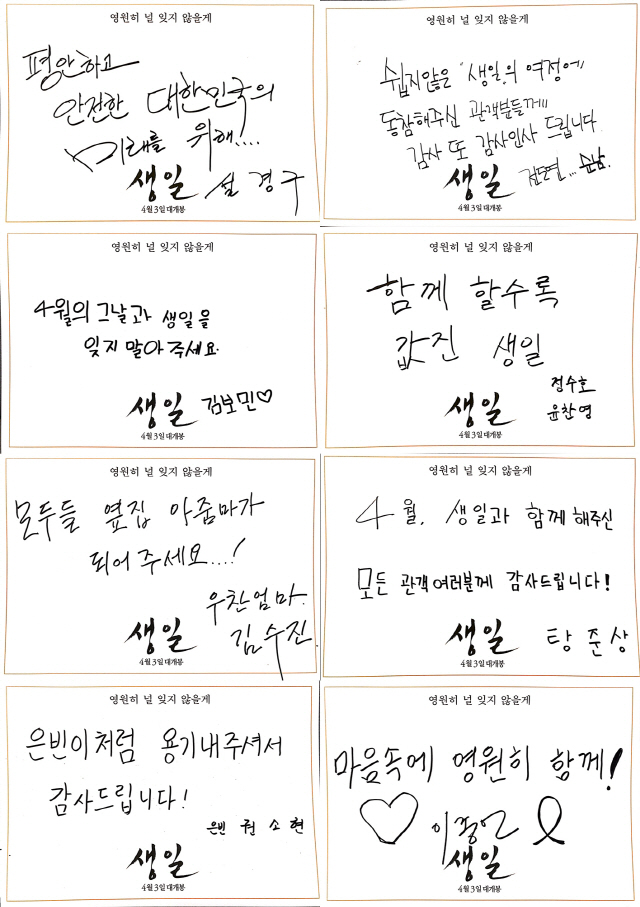 영원히 널 잊지 않을게
평안하고
안전한 대한민국의
미래를 위해....
생일 설경구
4월 3일 대개봉
영원히 널 잊지 않을게
쉽지않은 "생일"의 여정에
동참해주신 관객분들께
감사 또 감사인사 드립니다
생일 전도연...순남.
4월 3일 대개봉
영원히 널 잊지 않을게
4월의 그날과 생일을
잊지 말아주세요.
생일 김보민♡
4월 3일 대개봉
영원히 널 잊지 않을게
함께 할수록
값진 생일
정수호
생일 윤찬영
4월 3일 대개봉
영원히 널 잊지 않을게
모두들 옆집 아줌마가
되어주세요....!
우찬엄마.
생일 김수진
4월 3일 대개봉
영원히 널 잊지 않을게
4월, 생일과 함께 해주신
모든 관객여러분께 감사드립니다!
생일 탕준상
4월 3일 대개봉
영원히 널 잊지 않을게
은빈이처럼 용기내주셔서
감사드립니다!
은빈 권소현
생일
4월 3일 대개봉
영원히 널 잊지 않을게
마음속에 영원히 함께!
♡ 이종언
생일
4월 3일 대개봉